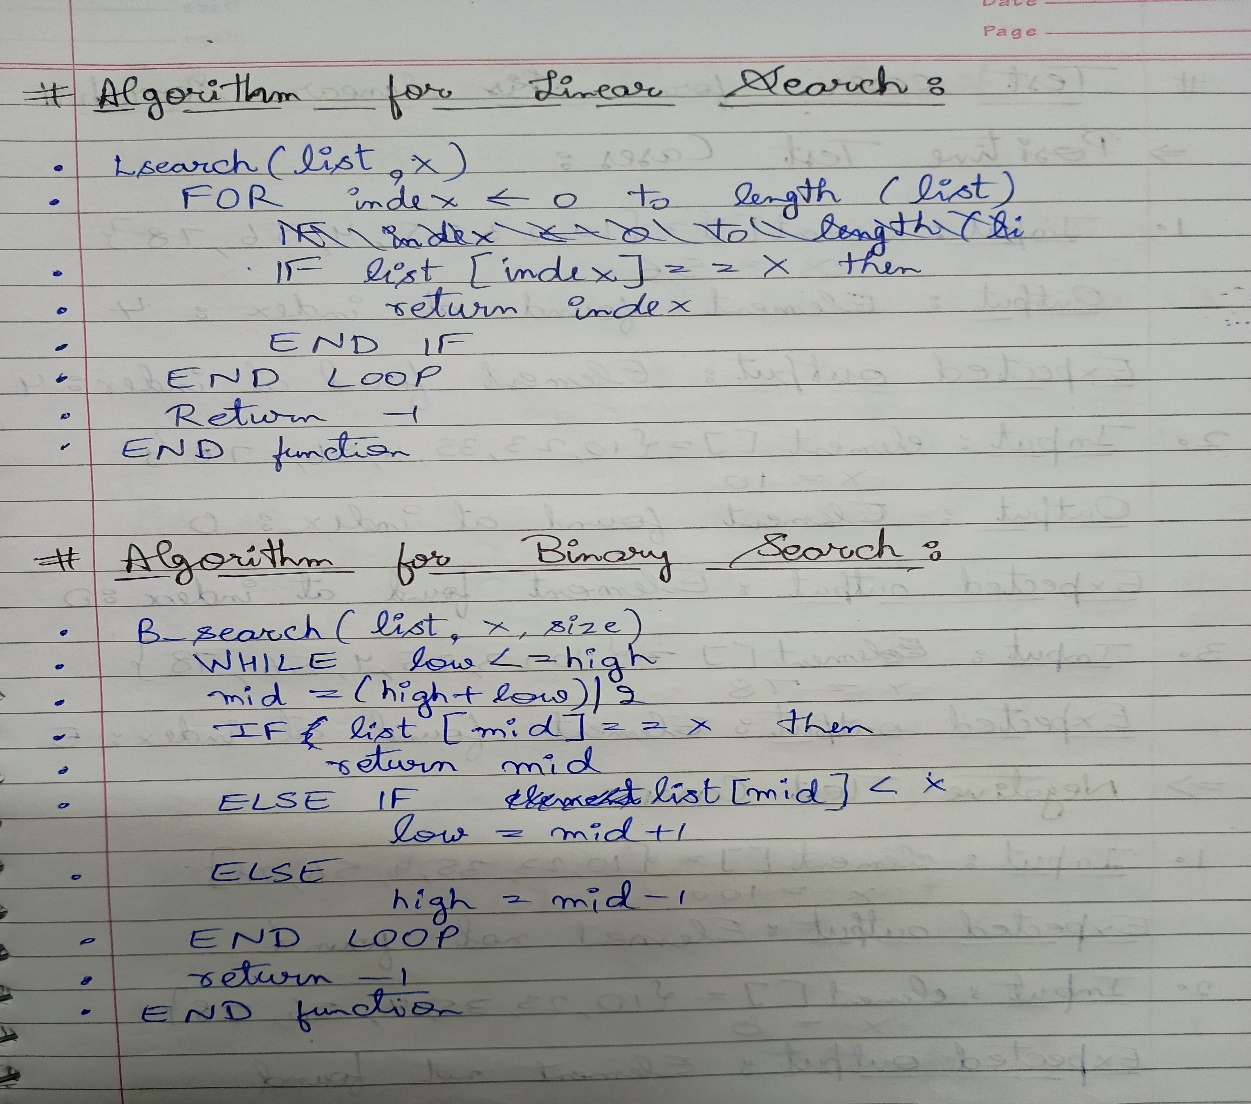 Date
Page
# Algorithm for Linear Search :
• Lsearch ( list , x )
• FOR index ← 0 to length ( list )
IF index ← 0 to length ( li
• IF list [ index ] = = x then
• return index
• END IF
• END LOOP
• Return -1
• END function
# Algorithm for Binary Search :
• B_search ( list, x, size )
• WHILE low <= high
• mid = (high + low) / 2
• IF list [ mid ] = = x then
• return mid
• ELSE IF element list [mid] < x
low = mid +1
• ELSE
high = mid -1
• END LOOP
• return -1
• END function